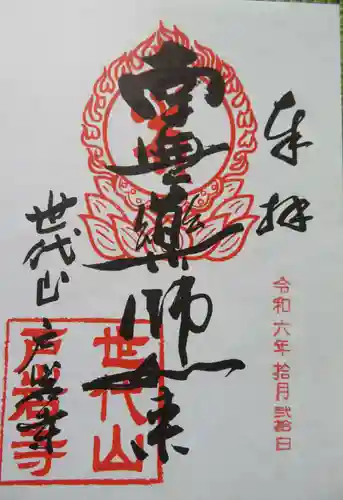 奉拝
令和六年拾月弐拾日
薬師如来
世代山
戸岩寺
世代山
戸岩寺